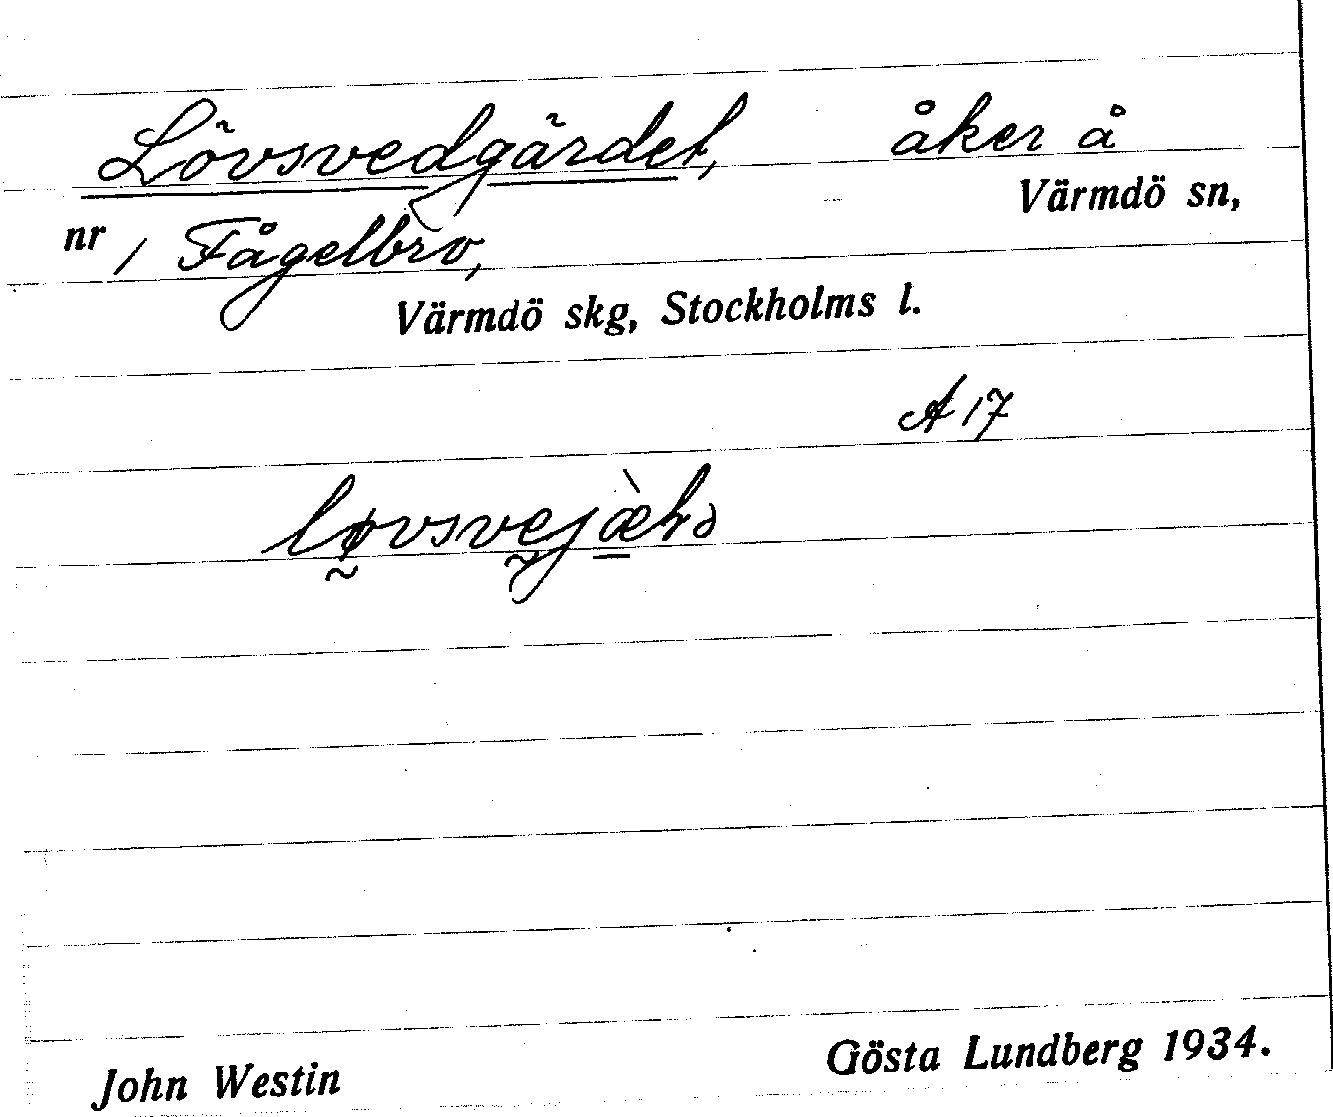 Lövsvedgärdet, åker å
Värmdö sn,
nr 1 Fågelbro,
Värmdö skg, Stockholms l.
A 17
John Westin
Gösta Lundberg 1934.